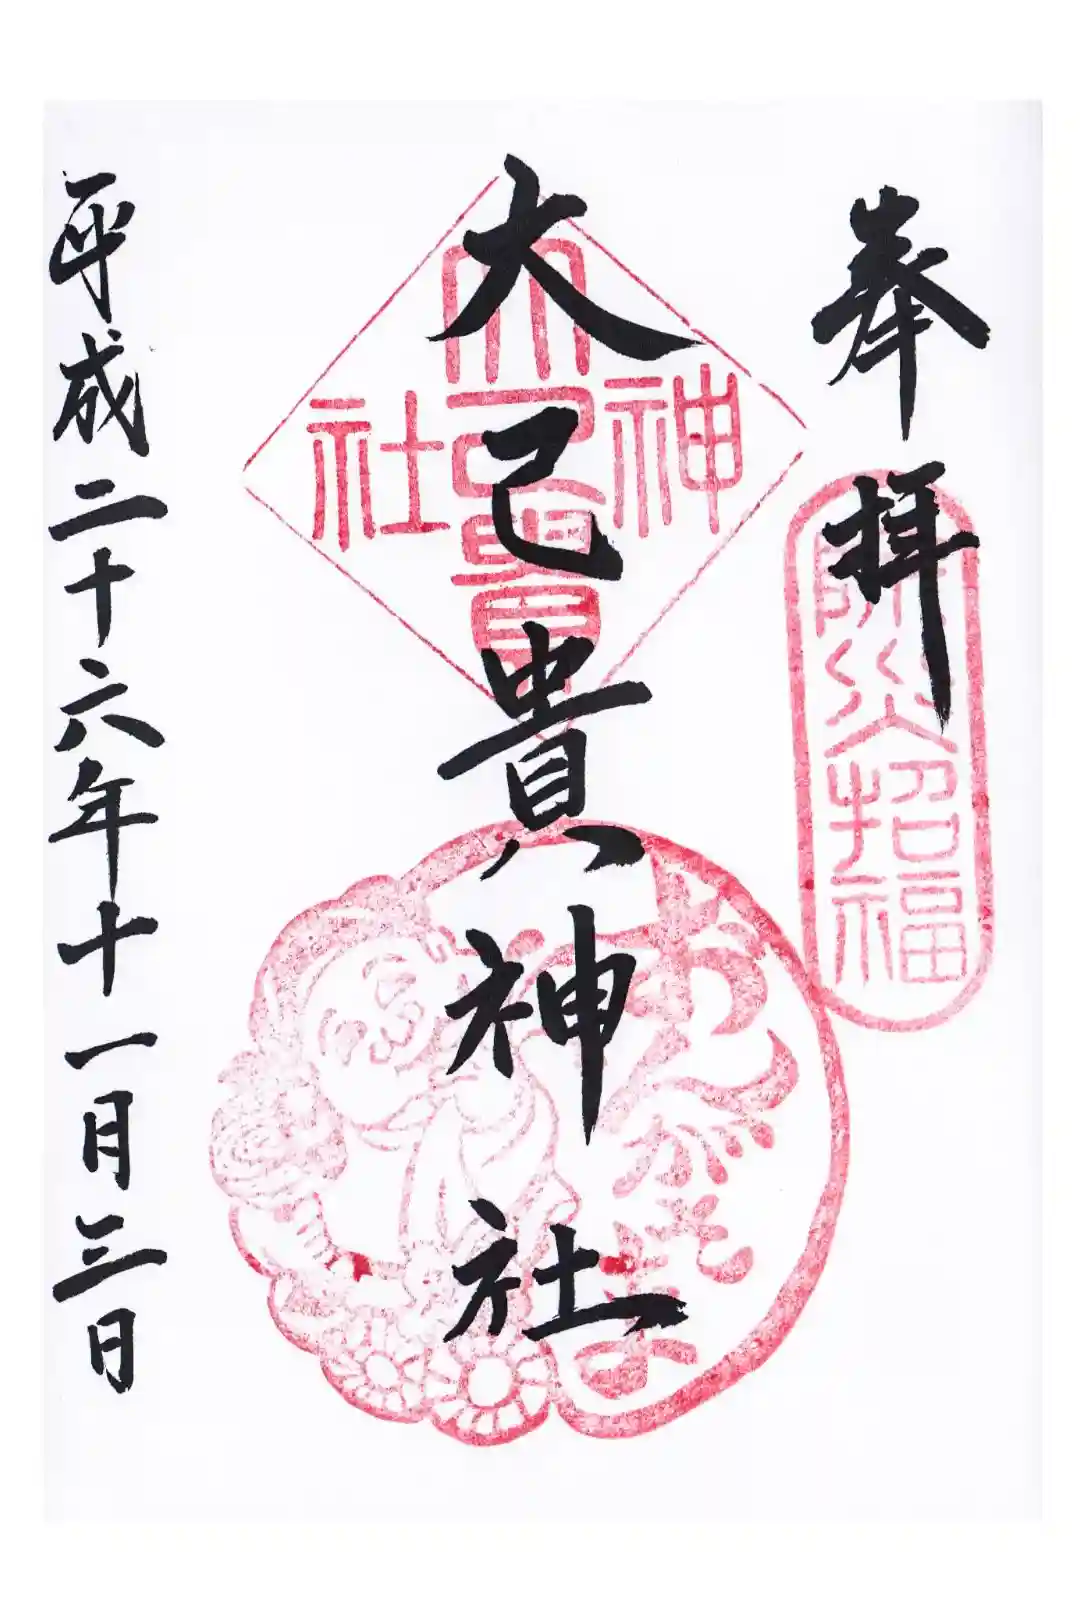 奉拝
除災招福
大己貴神社
大己貴
神
社
おんがさま
平成二十六年十一月三日